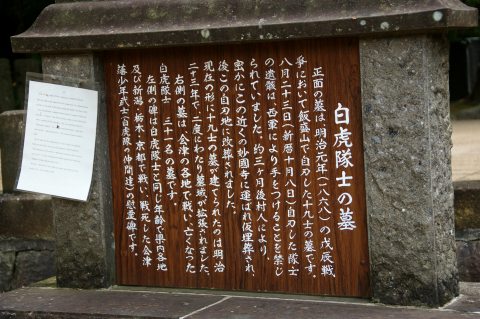 白虎隊士の墓
正面の墓は明治元年（一八六八）の戊辰戦
争において飯盛山で自刃した十九士の墓です。
八月二十三日（新暦十月八日）自刃した隊士
の遺骸は、西軍により手をつけることを禁じ
られていました。約三ヶ月後村人により、
密かにこの近くの妙國寺に運ばれ仮埋葬され、
後この自刃地に改葬されました。
現在の形に十九士の墓が建てられたのは明治
二十三年で、二度にわたり墓域が拡張されました。
右側の墓は、会津の各地で戦い亡くなった
白虎隊士 三十一名の墓です。
左側の碑は白虎隊士と同じ年齢で県内各地
及び新潟・栃木・京都で戦い、戦死した会津
藩少年武士（白虎隊の仲間達）慰霊碑です。